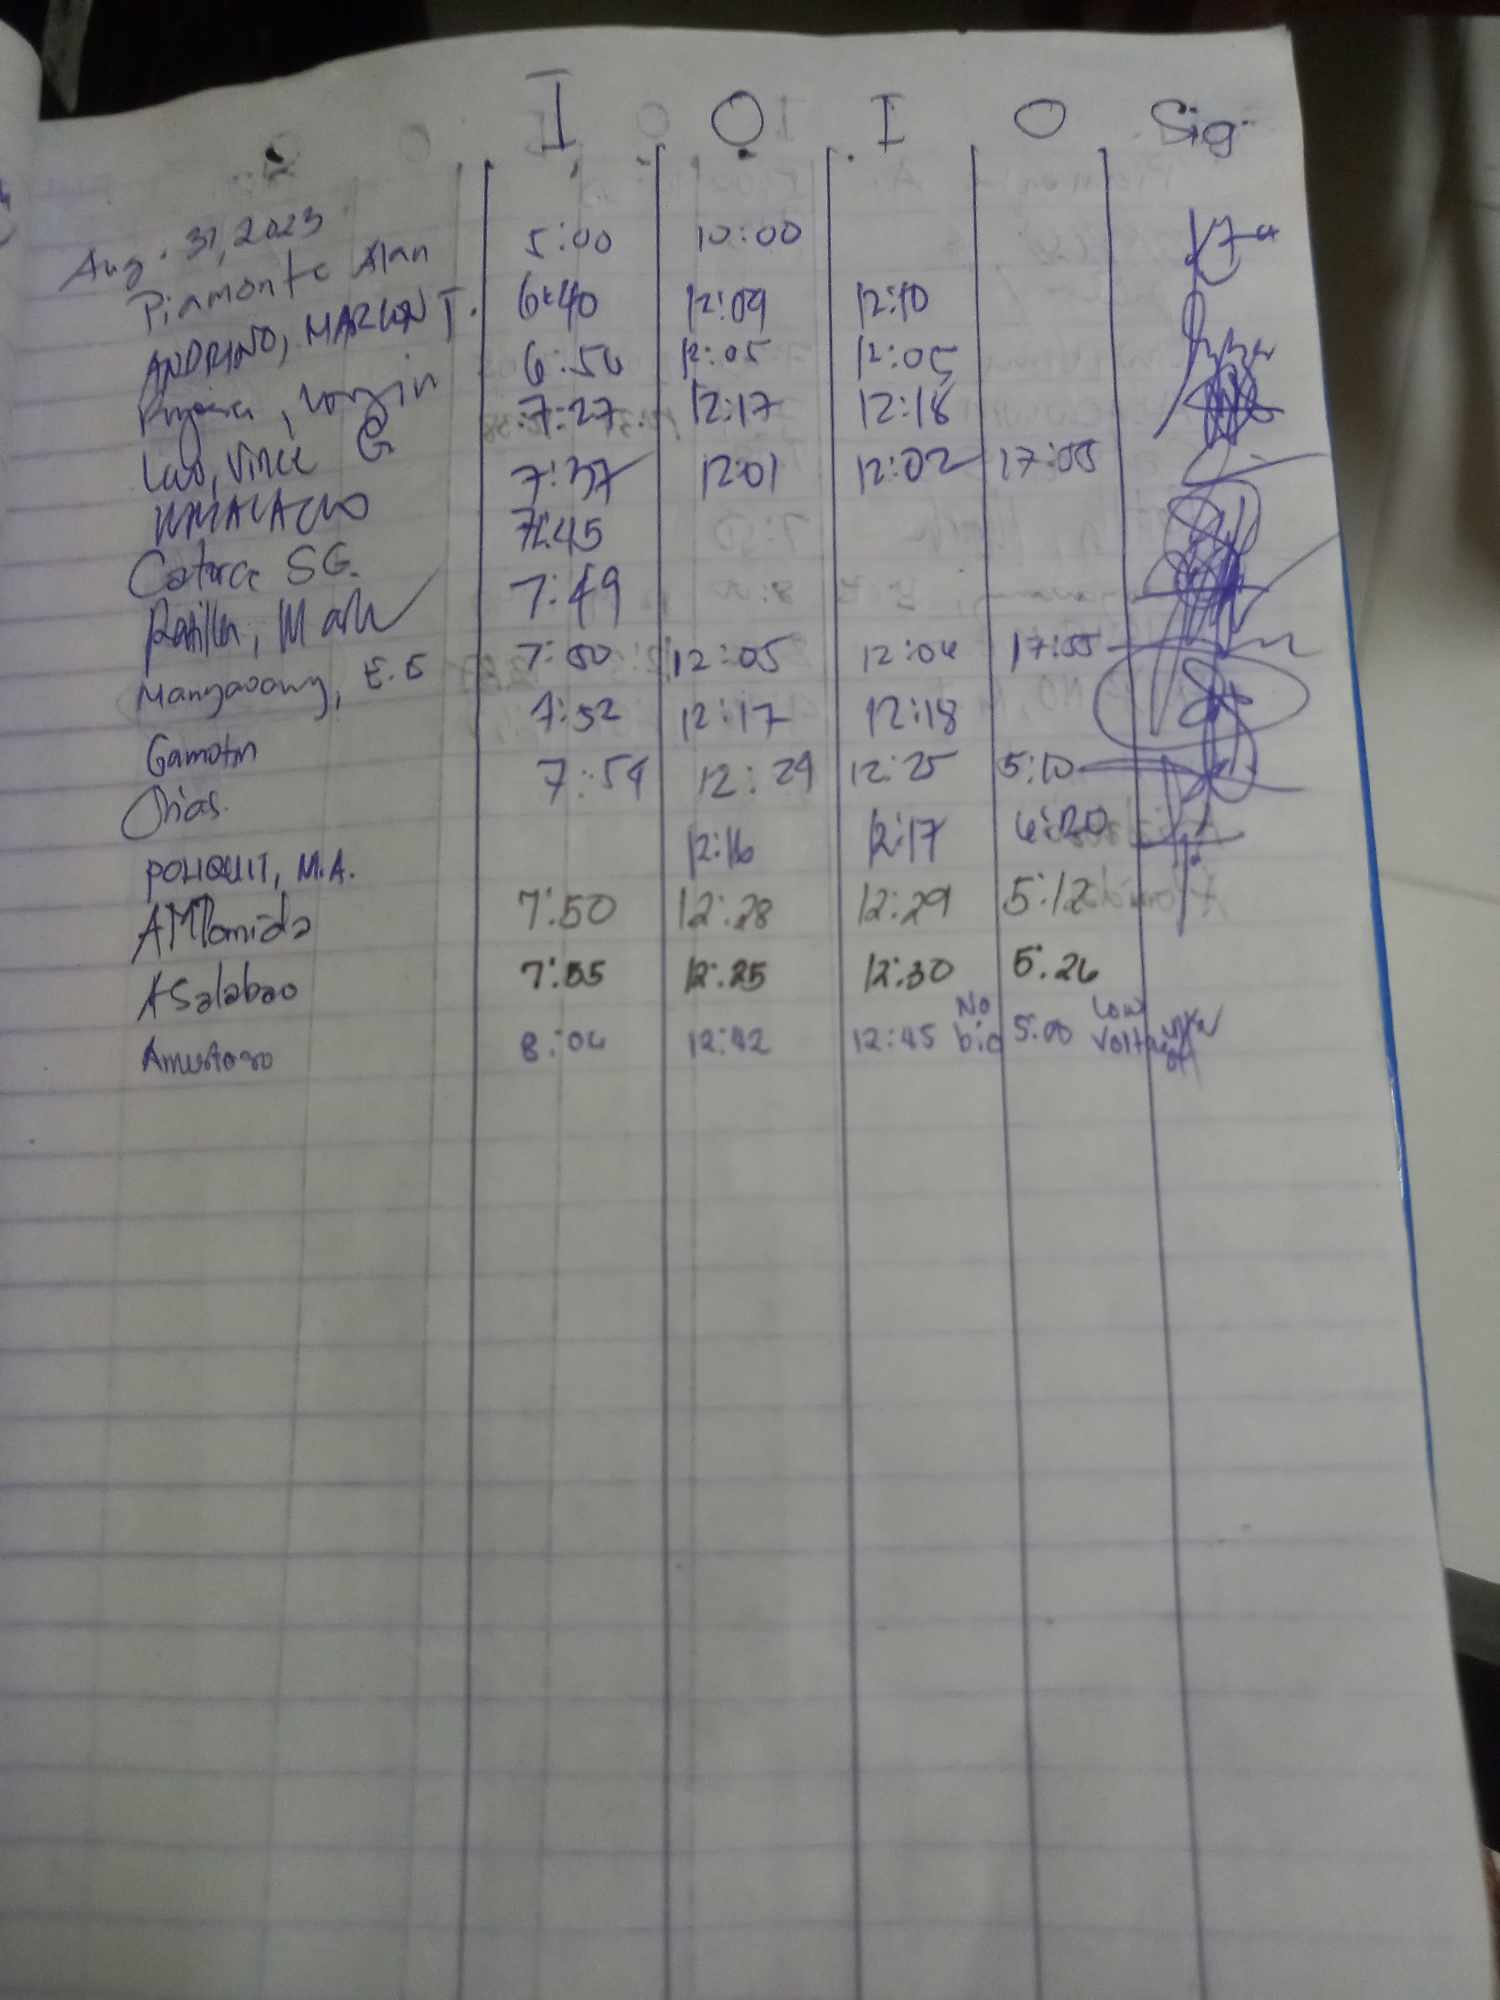 I O I O Sig.
Aug. 31, 2023
Piamonte Alan 5:00 10:00
ANDRINO, MARLON T. 6:40 12:09 12:10
6:50 12:05 12:05
Lao, Vince G 7:27 12:17 12:18
7:37 12:01 12:02 17:05
Catorce SG. 7:45
Mark 7:49
E.E 7:50 12:05 12:06 17:55
Gamotin 7:52 12:17 12:18
Orias. 7:54 12:24 12:25 5:10
POLIQUIT, M.A. 12:16 12:17 4:20
AMlomida 7:50 12:28 12:29 5:12
ASalabao 7:55 12:25 12:30 5:26
8:04 12:42 12:45 No bio 5:00 Low Voltage